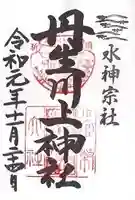 水神宗社
丹生川上神社
令和元年十一月十四日